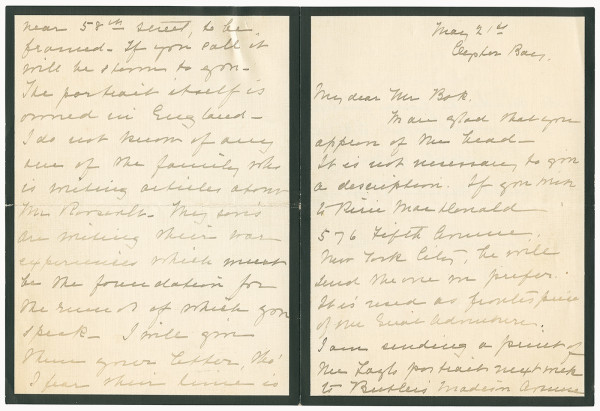 May 21st
Oyster Bay.
My dear Mr Bok.
I am glad that you
approve of the head —
It is not necessary to give
a description. If you write
to Pirie MacDonald
576 Fifth Avenue.
New York City, he will
send the one you prefer.
It is used as frontispiece
of the Great Adventure.
I am sending a print of
the Laszlo portrait next week
to Butler's Madison Avenue
near 58th street, to be
framed — If you call it
will be shown to you —
The portrait itself is
owned in England —
I do not know of any
one of the family who
is writing articles about
Mr Roosevelt. My sons
are writing their war
experiences which must
be the foundation for
the of which you
speak — I will give
them your letter, tho'
I fear their time is